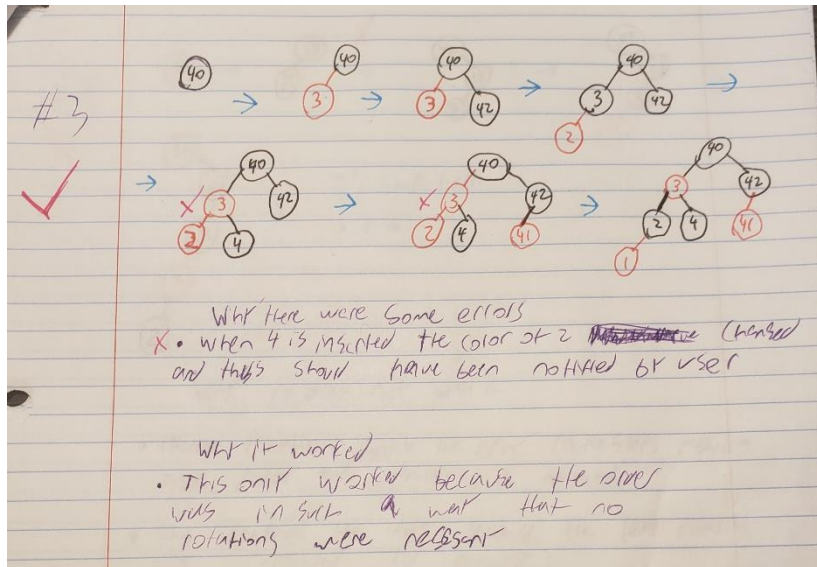 #3
40
40
3
40
3 42
40
3 42
2
40
3 42
2 4
40
3 42
2 4 41
40
3 42
2 4 41
1
Why there were some errors
X • when 4 is inserted the color of 2 changed
and this should have been notified by user
Why it worked
• This only worked because the order
was in such a way that no
rotations were necessary